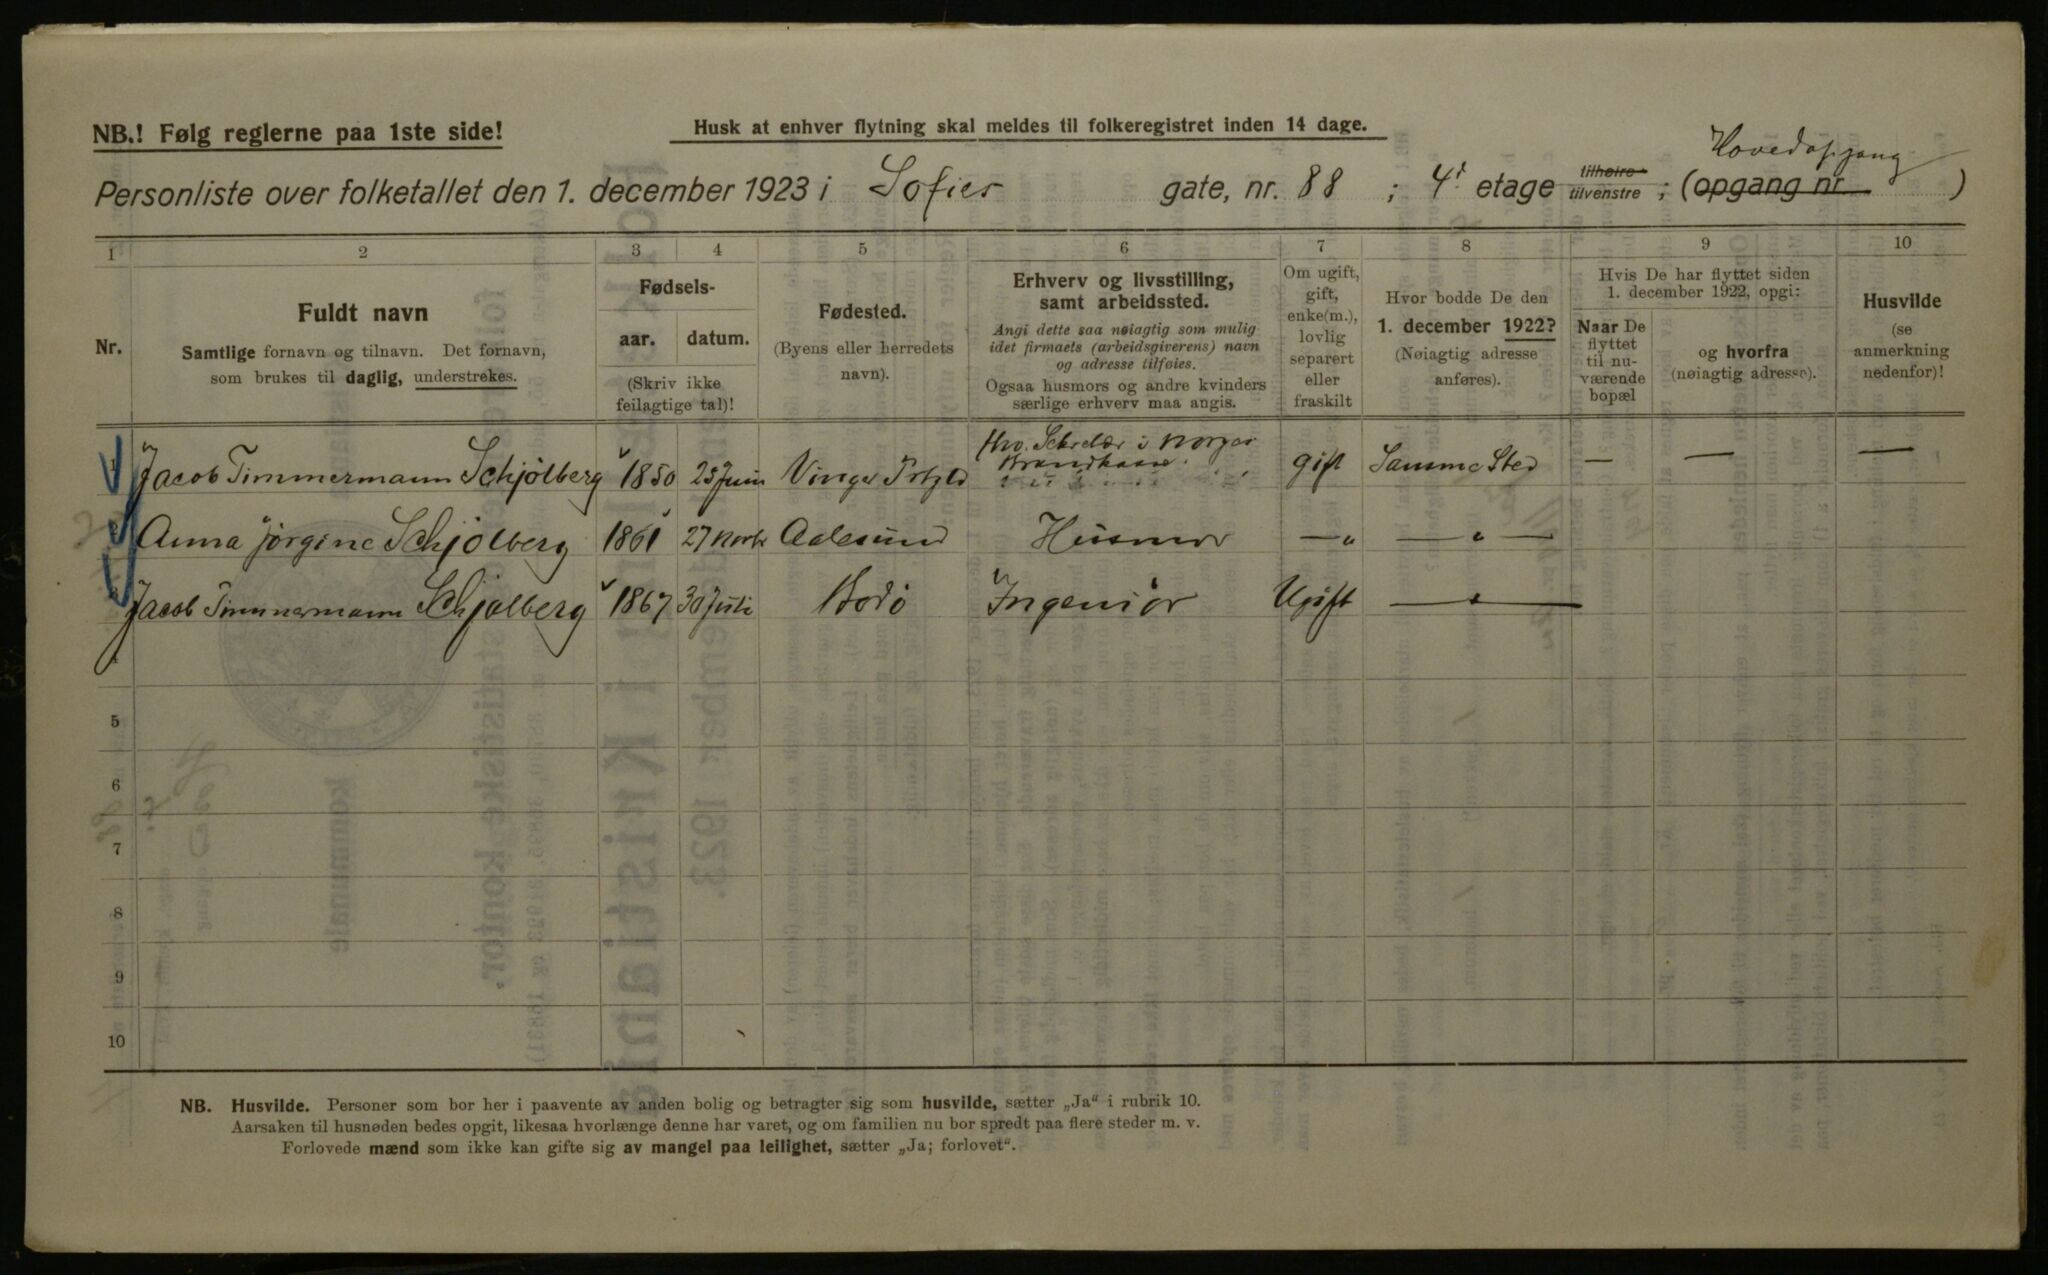 NB.! Følg reglerne paa 1ste side!
Husk at enhver flytning skal meldes til folkeregistret inden 14 dage.
Hovedopgang
Personliste over folketallet den 1. december 1923 i Sofies gate, nr. 88 ; 4' etage tilhøire tilvenstre ; (opgang nr. )
1 2 3 4 5 6 7 8 9 10
Nr.
Fuldt navn
Samtlige fornavn og tilnavn. Det fornavn,
som brukes til daglig, understrekes.
Fødsels-
aar. datum.
(Skriv ikke
feilagtige tal)!
Fødested.
(Byens eller herredets
navn).
Erhverv og livsstilling,
samt arbeidssted.
Angi dette saa nøiagtig som mulig
idet firmaets (arbeidsgiverens) navn
og adresse tilføies.
Ogsaa husmors og andre kvinders
særlige erhverv maa angis.
Om ugift,
gift,
enke(m.),
lovlig
separert
eller
fraskilt
Hvor bodde De den
1. december 1922?
(Nøiagtig adresse
anføres).
Hvis De har flyttet siden
1. december 1922, opgi:
Naar De
flyttet
til nu-
værende
bopæl
og hvorfra
(nøiagtig adresse).
Husvilde
(se
anmerkning
nedenfor)!
1 Jacob Timmermann Schjölberg 1850 25 Juni Vinger Prtgld Sekretær i Norges Brandkasse gift Samme Sted — — —
2 Anna Jörgine Schjölberg 1861 27 Novbr Aalesund Husmor —„ — „ —
3 Jacob Timmermann Schjölberg 1867 30 Juli Bodö Ingeniör Ugift —„—
4
5
6
7
8
9
10
NB. Husvilde. Personer som bor her i paavente av anden bolig og betragter sig som husvilde, sætter „Ja“ i rubrik 10.
Aarsaken til husnøden bedes opgit, likesaa hvorlænge denne har varet, og om familien nu bor spredt paa flere steder m. v.
Forlovede mænd som ikke kan gifte sig av mangel paa leilighet, sætter „Ja; forlovet“.